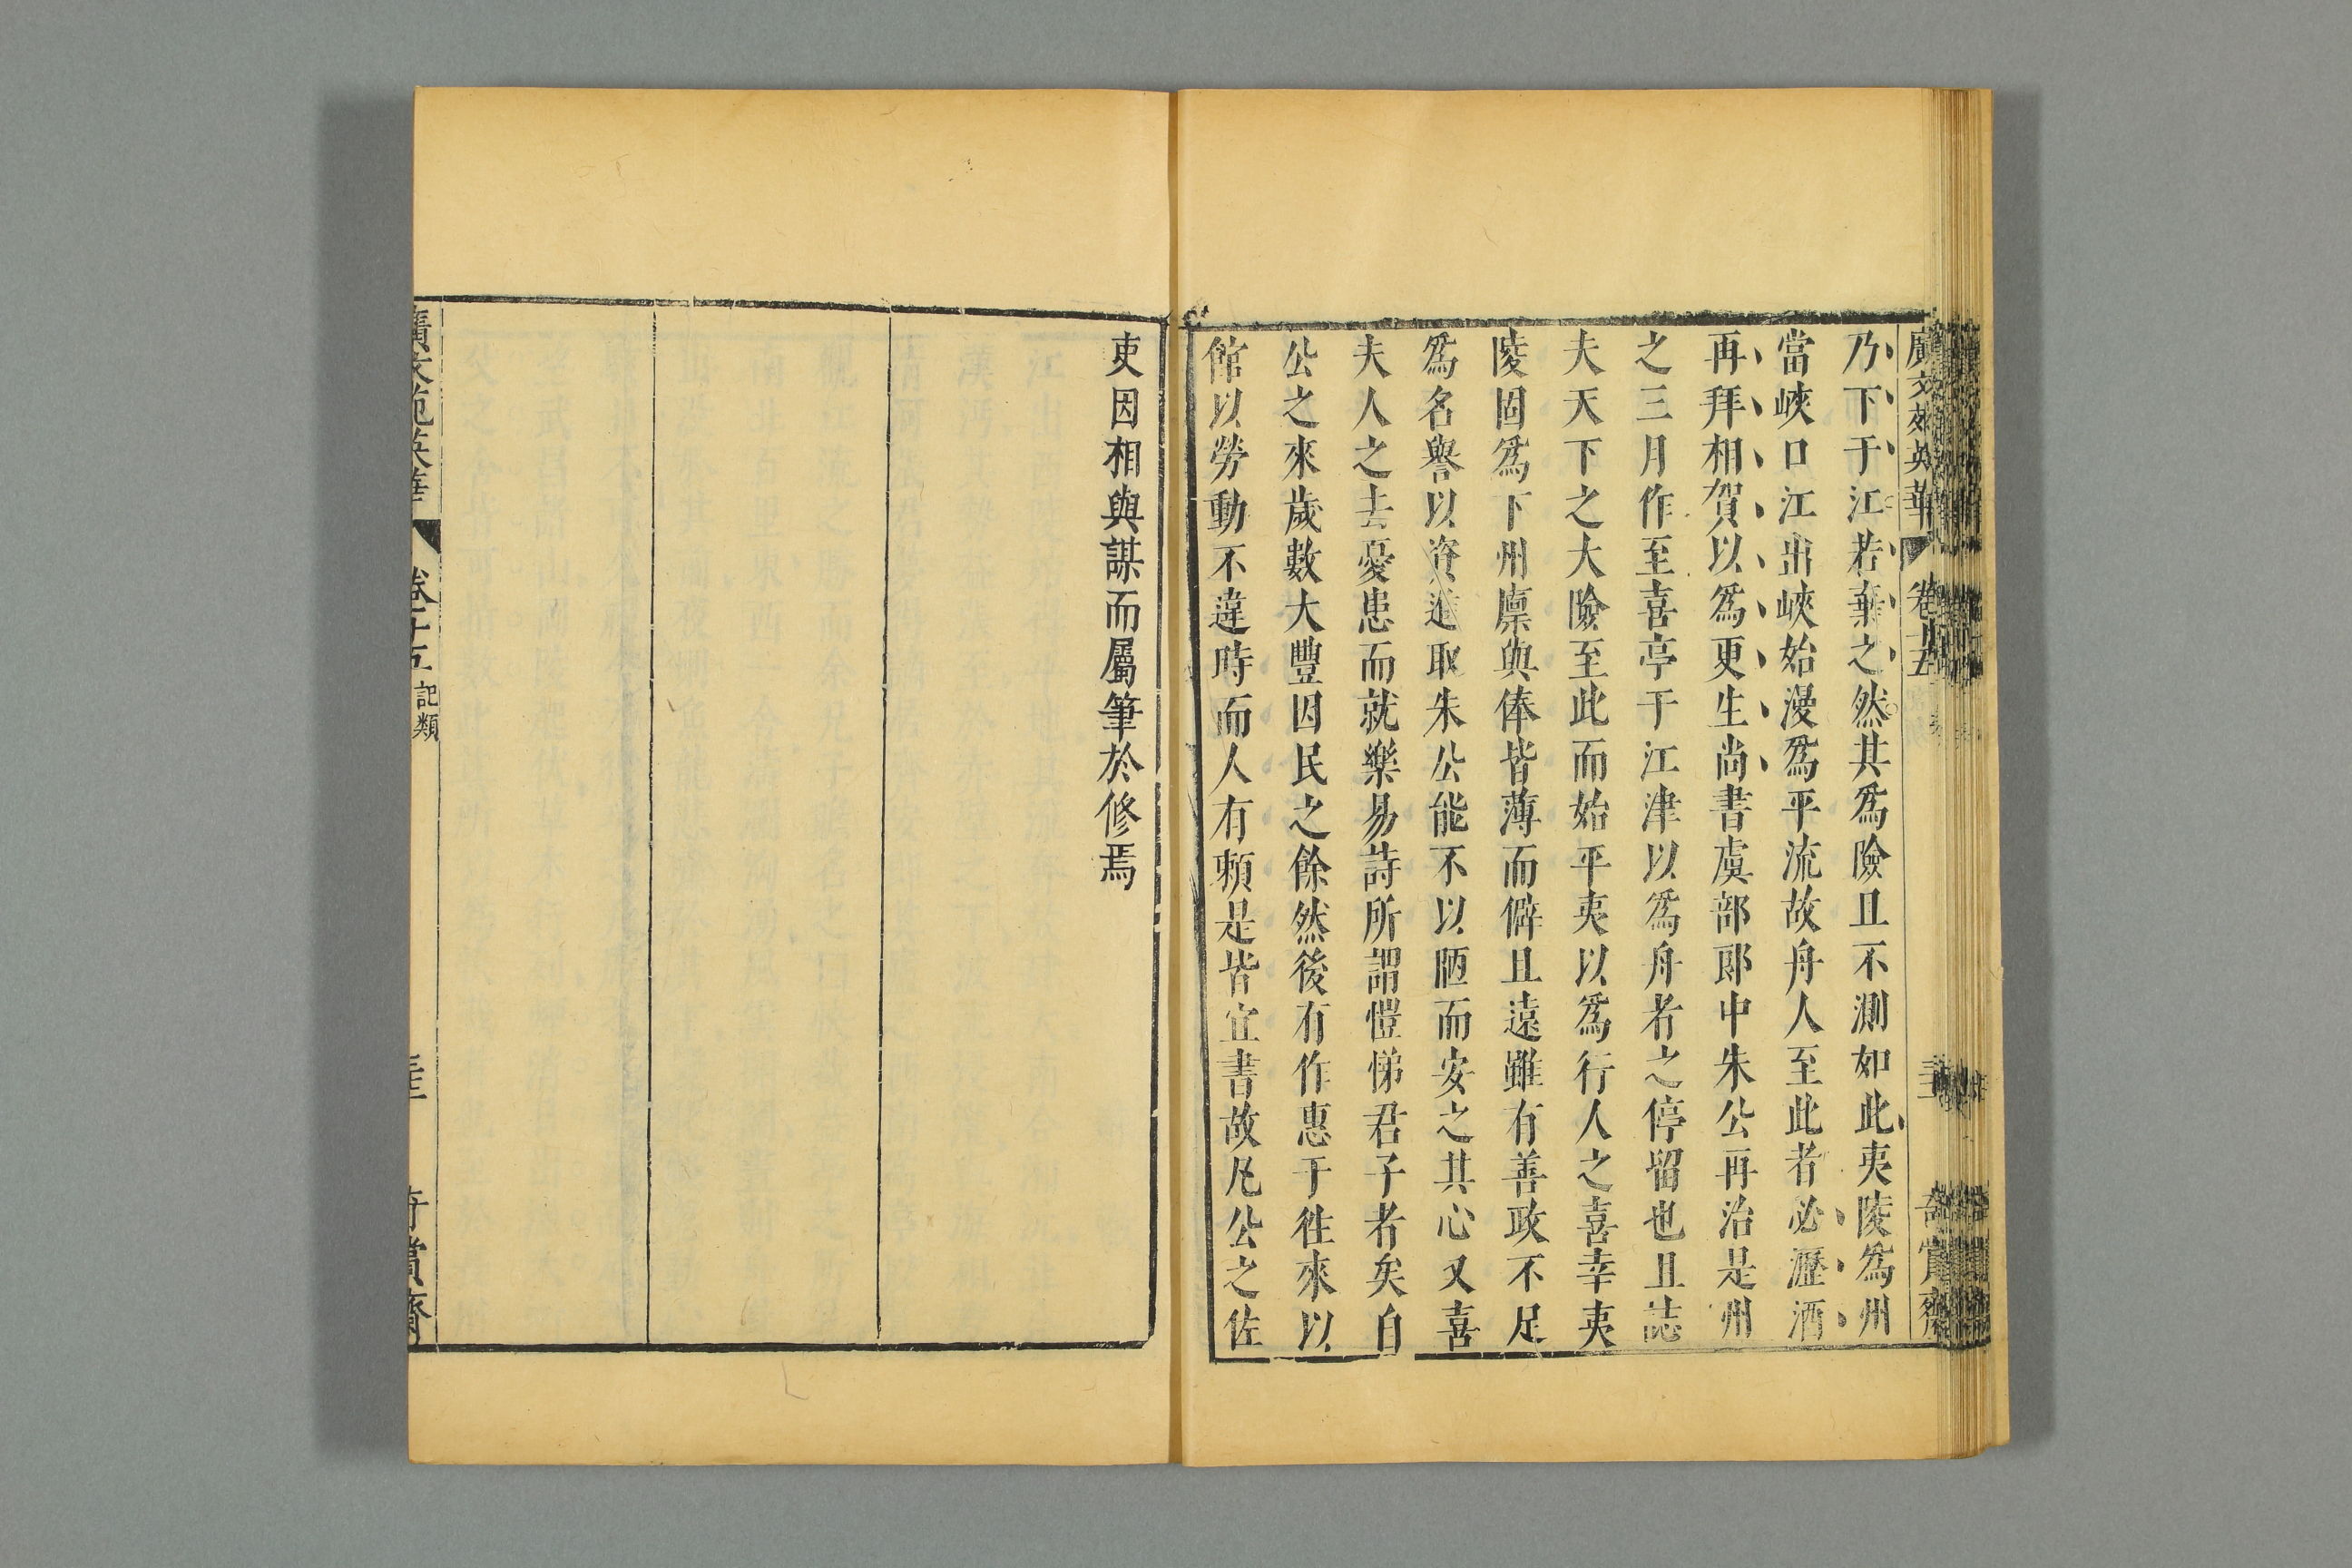 乃下于江若棄之然其爲險且不測如此夷陵爲州
當峽口江出峽始漫爲平流故舟人至此者必瀝酒
再拜相賀以爲更生尚書虞部郎中朱公再治是州
之三月作至喜亭于江津以爲舟者之停留也且誌
夫天下之大險至此而始平夷以爲行人之喜幸夷
陵固爲下州廪與俸皆薄而僻且遠雖有善政不足
爲名譽以資進取朱公能不以陋而安之其心又喜
夫人之去憂患而就樂易詩所謂愷悌君子者矣自
公之來歲數大豐因民之餘然後有作惠于徃來以
館以勞動不違時而人有賴是皆宜書故凡公之佐
吏因相與謀而屬筆於修焉
廣文苑英華 卷十五 記類 奇賞齋